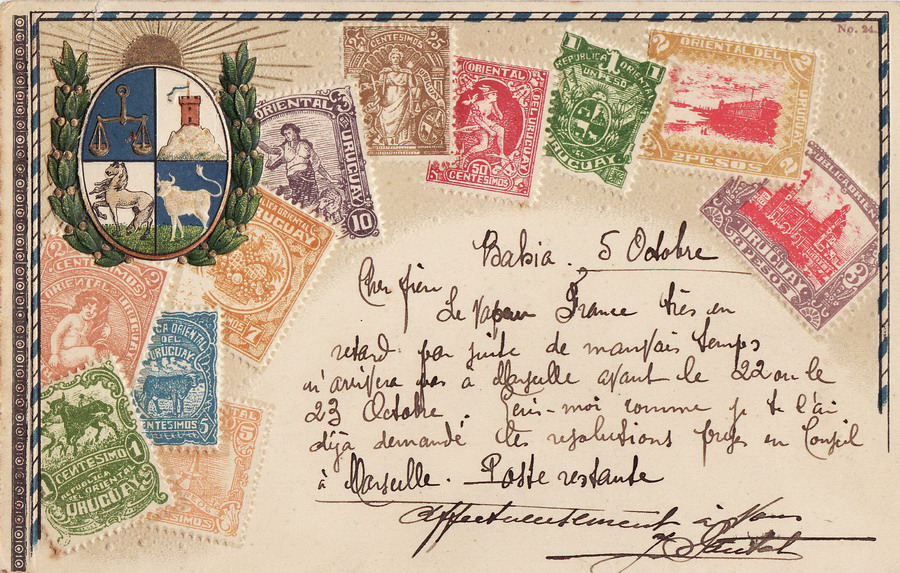 No. 24
CENTESIMOS 25
ORIENTAL
URUGUAY
10
ORIENTAL
DEL URUGUAY
50
CENTESIMOS
1 1
REPUBLICA ORIENTAL
UN PESO
URUGUAY
2 ORIENTAL DEL 2
URUGUAY
2 PESOS 2
REPUBLICA ORIENTAL
URUGUAY
3 PESOS 3
ORIENTAL
URUGUAY
7
2 CENTESIMOS 2
ORIENTAL URUGUAY
ORIENTAL
DEL
URUGUAY
CENTESIMOS 5
1 CENTESIMO 1
REPUBLICA
ORIENTAL
DEL
URUGUAY
5
CENTESIMOS
Bahia. 5 Octobre
Cher fien
Le Vapeur France très en
retard par suite de mauvais temps
n'arrivera pas à Marseille avant le 22 ou le
23 Octobre. Ecris-moi comme je te l'ai
déjà demandé les resolutions prises en Conseil
à Marseille. Poste restante
Affectueusement à vous